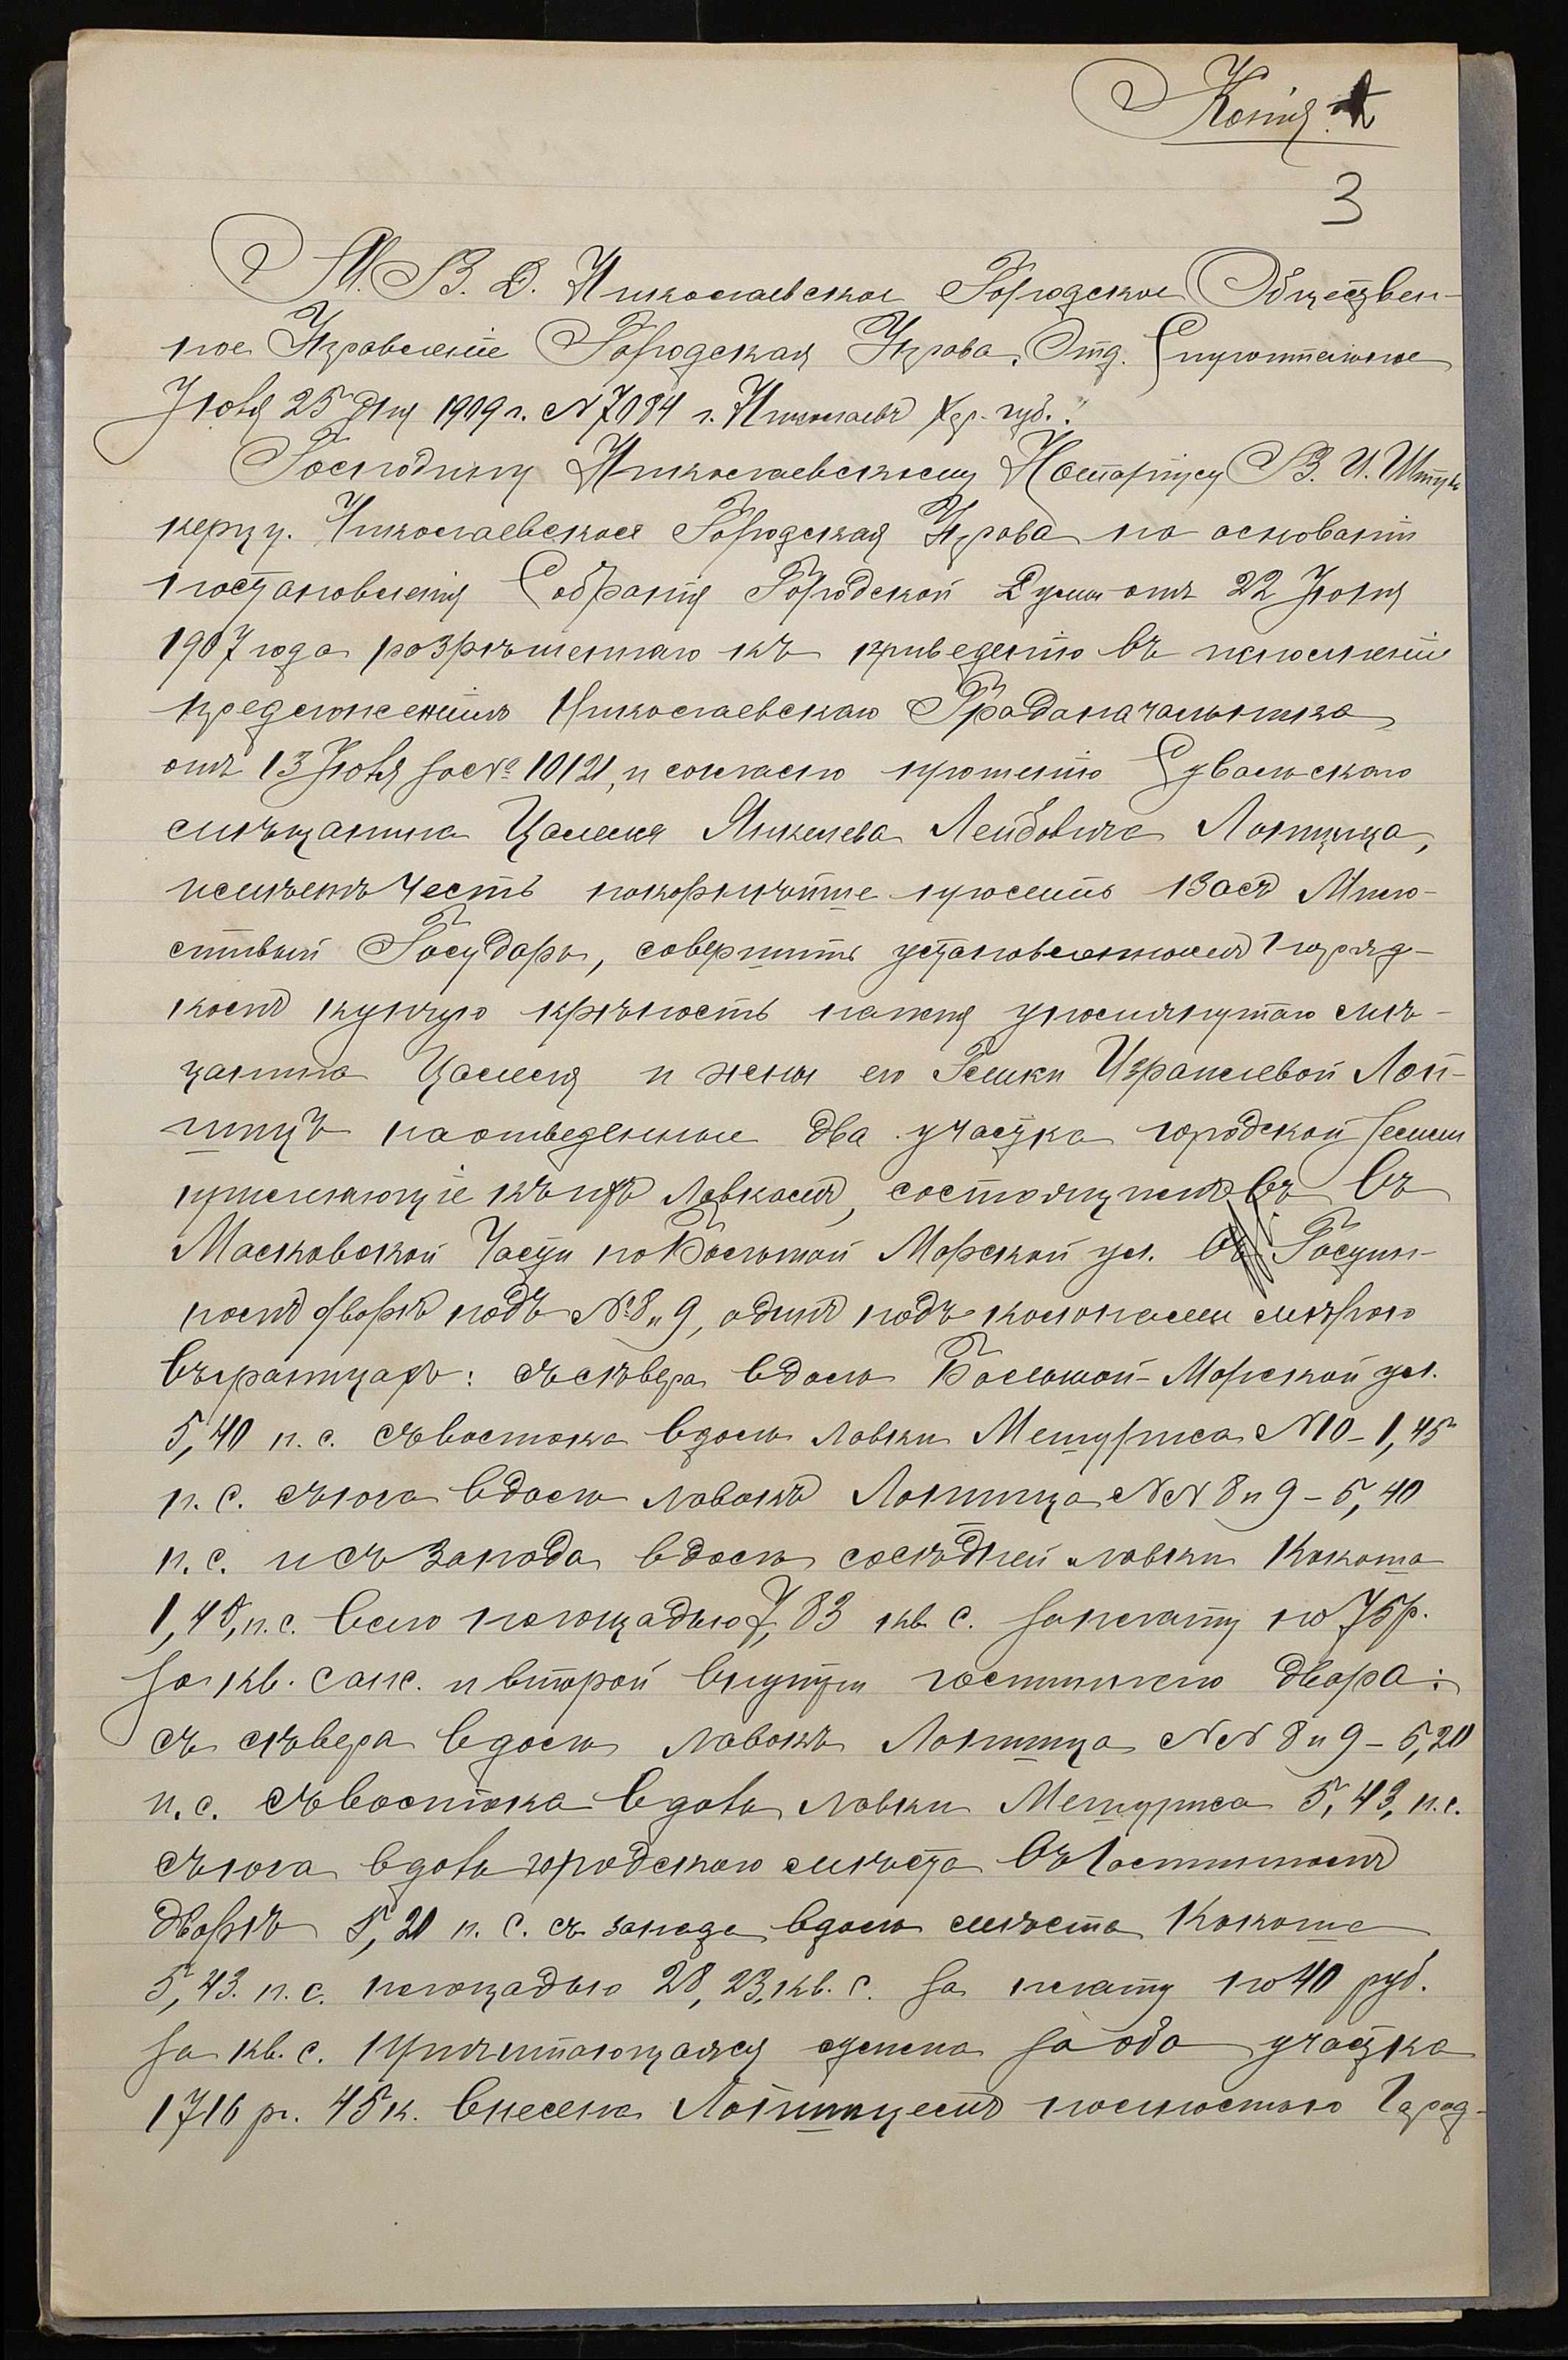 Копія.
3
М. В. Д. Николаевское Городское Обществен-
ное Управленіе Городская Управа, Отд. Строительное
Іюля 25 дня 1909 г. № 7084 г. Николаевъ Хер. губ.
Господину Николаевскому Нотаріусу В. И.
керцу. Николаевская Городская Управа на основаніи
постановленія Собранія Городской Думы отъ 22 Іюня
1907 года разрѣшеннаго къ приведенію въ исполненіе
предложеніемъ Николаевскаго Градоначальника
отъ 13 Іюля за № 10121, и согласно прошенію Сувальскаго
мѣщанина Цалеля Янкелева Лейбовича Лопшица,
имѣетъ честь покорнѣйше просить Васъ Мило-
стивый Государь, совершить установленнымъ поряд-
комъ купчую крѣпость на имя упомянутаго мѣ-
щанина Цалеля и жены его Гешки Израилевой Лоп-
шицъ на отведенные два участка городской земли
примыкающіе къ ихъ лавкамъ, состоящимъ въ
Московской Части по Большой Морской ул. въ Гостин-
номъ дворѣ подъ № 8 и 9, одинъ подъ колонами мѣрою
въ границахъ: съ сѣвера вдоль Большой-Морской ул.
5,40 п. с. съ востока вдоль лавки № 10 - 1,45
п. с. съ юга вдоль лавокъ Лопшица №№ 8 и 9 - 5,40
п. с. и съ запада вдоль сосѣдней лавки Кокоша
1,45, п. с. всего площадью 7,83 кв. с. за плату по 75 р.
за кв. саж. и второй внутри гостиннаго двора:
съ сѣвера вдоль лавокъ Лопшица №№ 8 и 9 - 5,20
п. с. съ востока вдоль лавки 5,43, п. с.
съ юга вдоль городскаго мѣста въ Гостинномъ
дворѣ 5,20 п. с. съ запада вдоль мѣста Кокоша
5,43. п. с. площадью 28,23, кв. с. за плату по 40 руб.
за кв. с. Причитающаяся сумма за оба участка
1716 р. 45 к. внесена Лопшицемъ полностью Город-